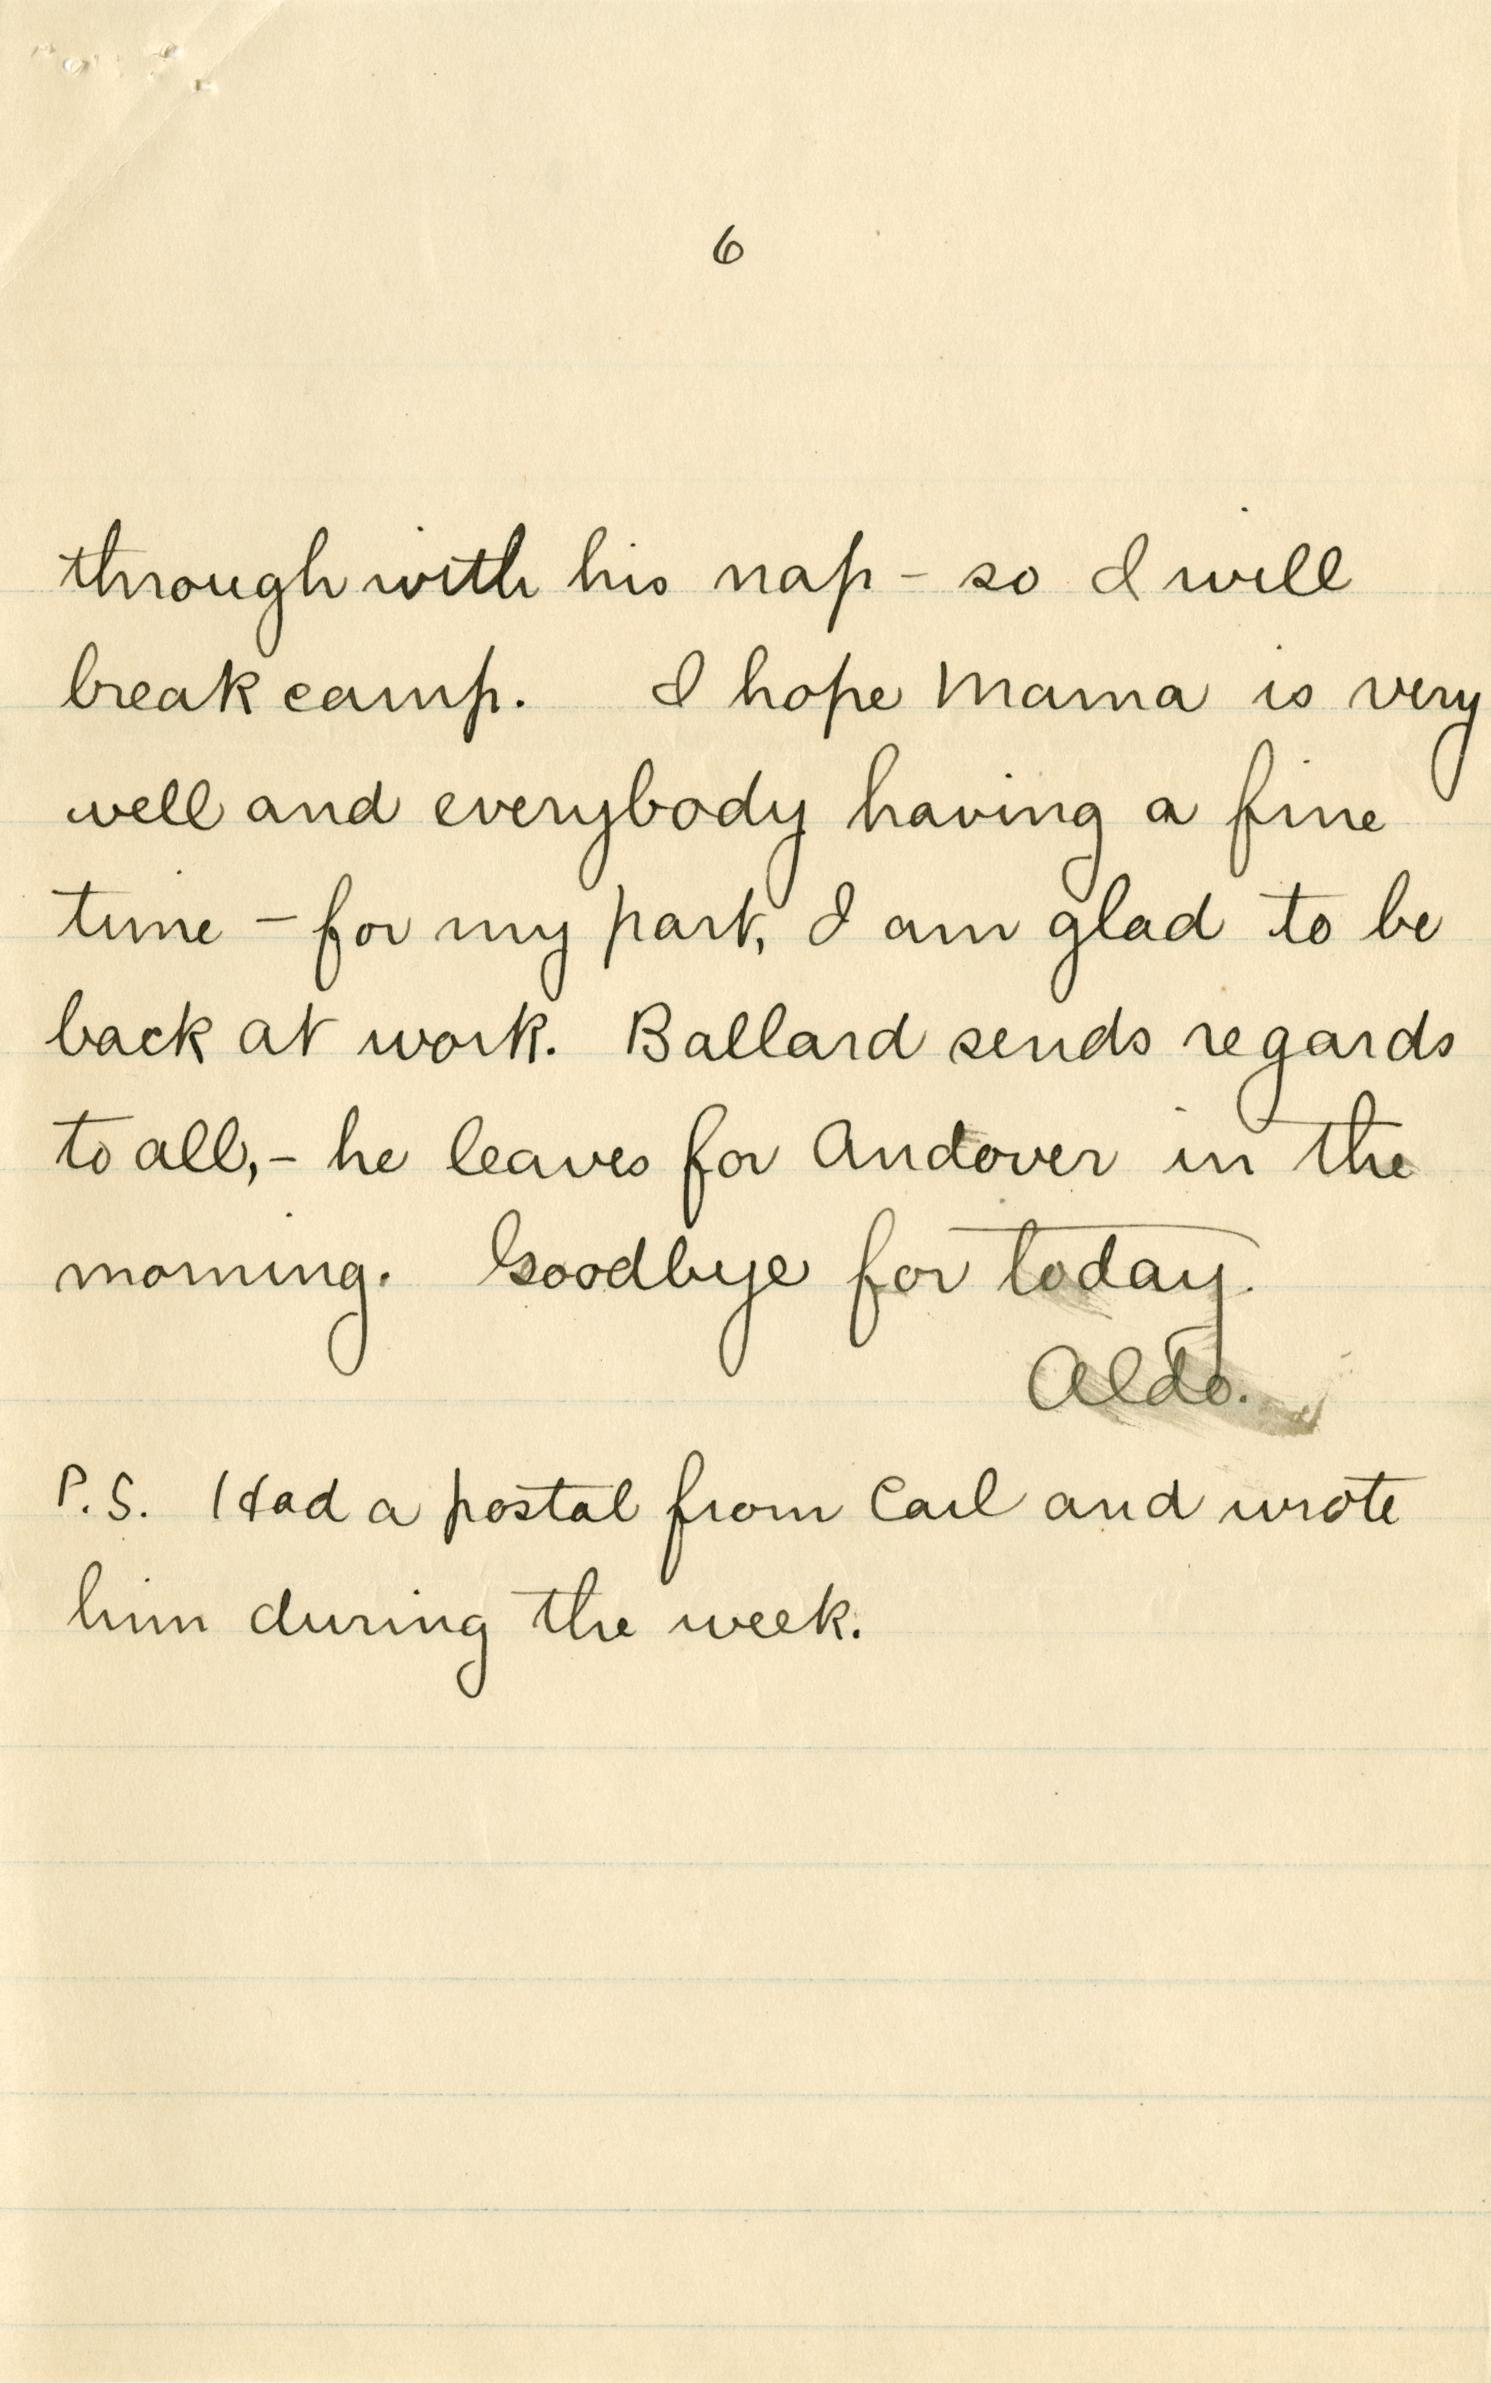 6
through with his nap - so I will
break camp. I hope Mama is very
well and everybody having a fine
time - for my part, I am glad to be
back at work. Ballard sends regards
to all, - he leaves for Andover in the
morning. Goodbye for today.
Aldo.
P.S. Had a postal from Carl and wrote
him during the week.